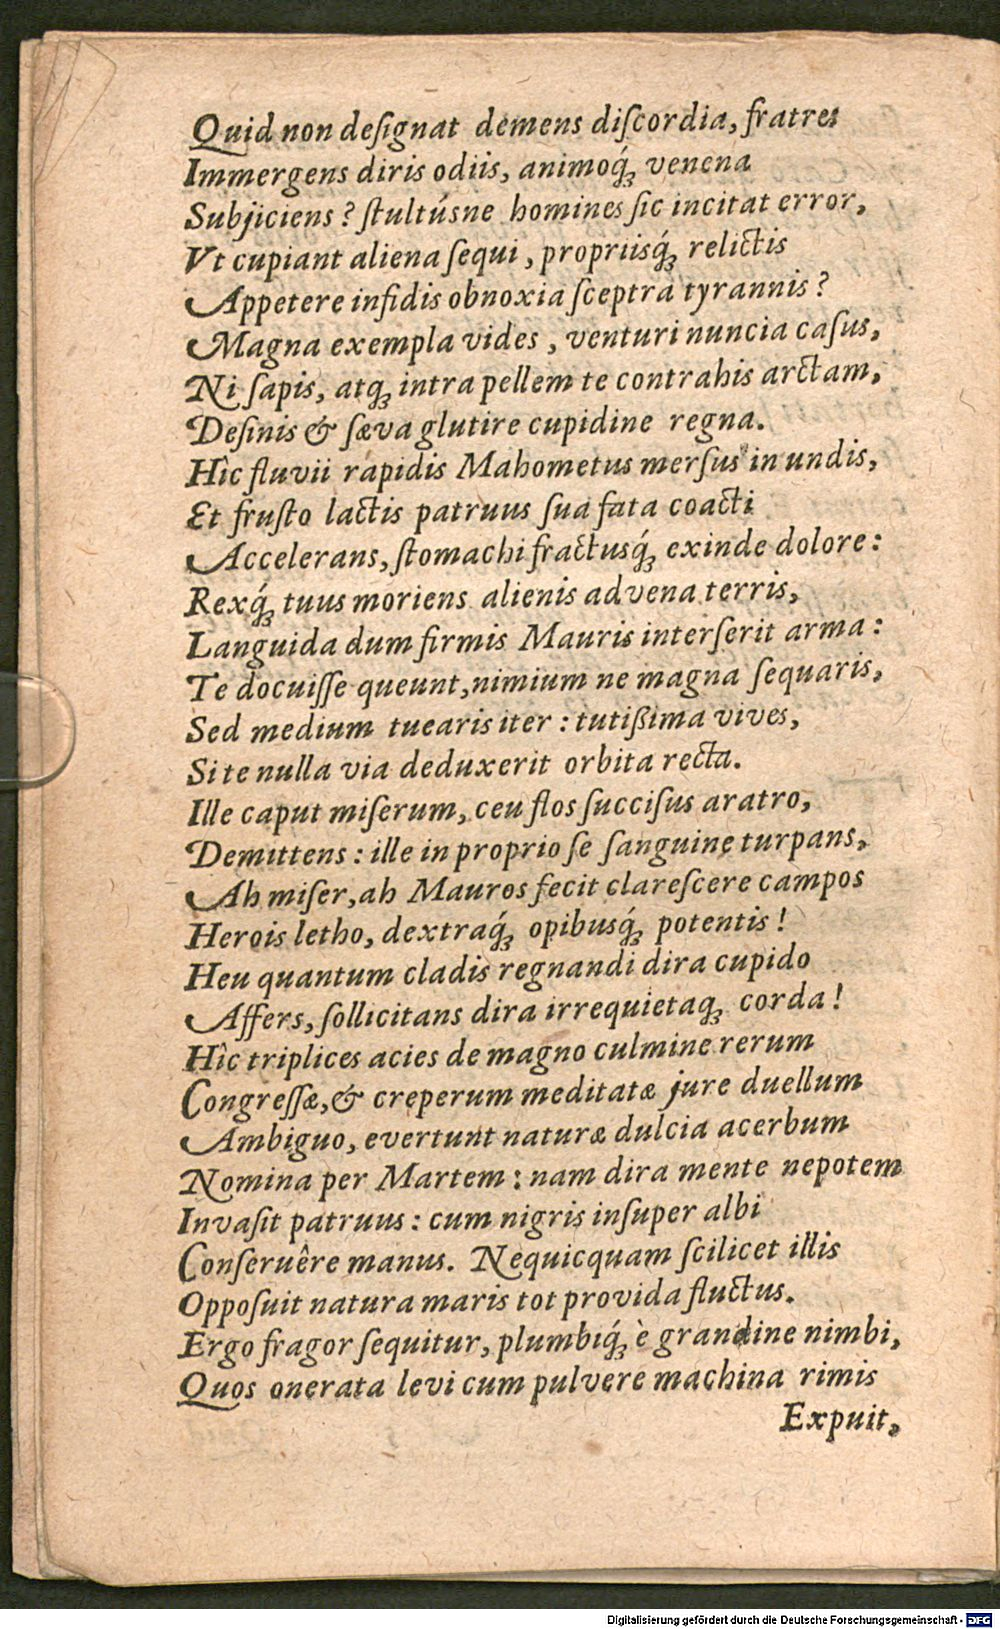 Quid non deſignat demens diſcordia, fratres
Immergens diris odiis, animoq́ꝫ venena
Subjiciens? ſtultúsne homines ſic incitat error,
Vt cupiant aliena ſequi, propriisq́ꝫ relictis
Appetere infidis obnoxia ſceptra tyrannis?
Magna exempla vides, venturi nuncia caſus,
Ni ſapis, atqꝫ intra pellem te contrahis arctam,
Deſinis & ſæva glutire cupidine regna.
Hîc fluvii rapidis Mahometus merſus in undis,
Et fruſto lactis patruus ſua fata coacti
Accelerans, ſtomachi fractusq́ꝫ exinde dolore:
Rexq́ꝫ tuus moriens alienis advena terris,
Languida dum firmis Mauris interſerit arma:
Te docuiſſe queunt, nimium ne magna ſequaris,
Sed medium tuearis iter: tutißima vives,
Si te nulla via deduxerit orbita recta.
Ille caput miſerum, ceu flos ſucciſus aratro,
Demittens: ille in proprio ſe ſanguine turpans,
Ah miſer, ah Mauros fecit clareſcere campos
Herois letho, dextraq́ꝫ opibusq́ꝫ potentis!
Heu quantum cladis regnandi dira cupido
Affers, ſollicitans dira irrequietaqꝫ corda!
Hîc triplices acies de magno culmine rerum
Congreſſæ, & creperum meditatæ jure duellum
Ambiguo, evertunt naturæ dulcia acerbum
Nomina per Martem: nam dira mente nepotem
Invaſit patruus: cum nigris inſuper albi
Conſeruêre manus. Nequicquam ſcilicet illis
Oppoſuit natura maris tot provida fluctus.
Ergo fragor ſequitur, plumbiq́ꝫ è grandine nimbi,
Quos onerata levi cum pulvere machina rimis
Expuit,
Digitalisierung gefördert durch die Deutsche Forschungsgemeinschaft - DFG